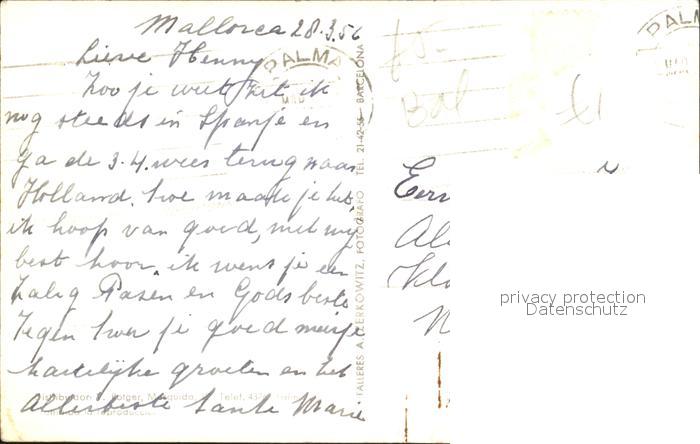 Mallorca 28.3.56
Lieve Henny
Zoo je weet zit ik
nog steeds in Spanje en
ga de 3.4. weer terug naar
Holland, hoe maak je het,
ik hoop van goed, met mij
best hoor, ik wens je een
Zalig Pasen en Gods beste
Zegen hoor je goed meisje
hartelijke groeten en het
Allerbeste tante Marie
PALMA
TALLERES A. ZERKOWITZ, FOTOGRAFO TEL. 21-42-56 BARCELONA
PALM
Bal
Eerw
Al
Klo
N
privacy protection
Datenschutz